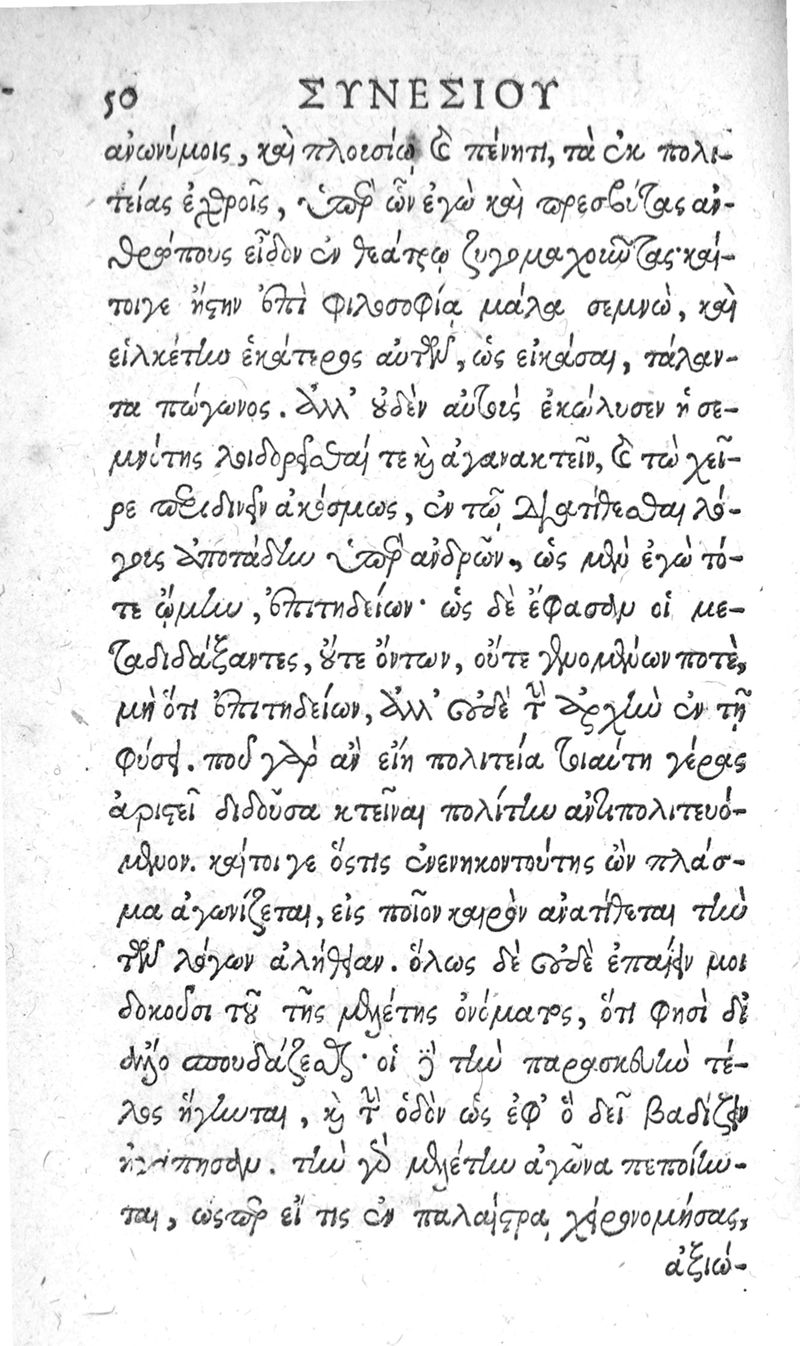 50 ΣΥΝΕΣΙΟΥ
ἀνωνύμοις, καὶ πλουσίῳ καὶ πένητι, τὰ ἐκ πολι-
τείας ἐχθροῖς, ὑπὲρ ὧν ἐγὼ καὶ πρεσβύτας ἀν-
θρώπους εἶδον ἐν θεάτρῳ ζυγομαχοῦντας· καί-
τοιγε ἤστην ἐπὶ φιλοσοφίᾳ μάλα σεμνὼ, καὶ
εἱλκέτην ἑκάτερος αὐτῶν, ὡς εἰκάσαι, τάλαν-
τα πώγωνος. ἀλλ' οὐδὲν αὐτοὺς ἐκώλυσεν ἡ σε-
μνότης λοιδορεῖσθαί τε καὶ ἀγανακτεῖν, καὶ τὼ χεῖ-
ρε περιδινεῖν ἀκόσμως, ἐν τῷ διατίθεσθαι λό-
γους ἀποτάδην ὑπὲρ ἀνδρῶν, ὡς μὲν ἐγὼ τό-
τε ᾤμην, ἐπιτηδείων· ὡς δὲ ἔφασαν οἱ με-
ταδιδάξαντες, οὔτε ὄντων, οὔτε γενομένων ποτὲ,
μὴ ὅτι ἐπιτηδείων, ἀλλ' οὐδὲ τὴν ἀρχὴν ἐν τῇ
φύσει. ποῦ γὰρ ἂν εἴη πολιτεία τοιαύτη γέρας
ἀριστεῖ διδοῦσα κτεῖναι πολίτην ἀντιπολιτευό-
μενον. καίτοιγε ὅστις ἐνενηκοντούτης ὢν πλάσ-
μα ἀγωνίζεται, εἰς ποῖον καιρὸν ἀνατίθεται τὴν
τῶν λόγων ἀλήθειαν. ὅλως δὲ οὐδὲ ἐπαΐειν μοι
δοκοῦσι τοῦ τῆς μελέτης ὀνόματος, ὅτι φησὶ δι'
ἄλλο σπουδάζεσθαι· οἱ δὲ τὴν παρασκευὴν τέ-
λος ἥγηνται, καὶ τὴν ὁδὸν ὡς ἐφ' ὃ δεῖ βαδίζειν
ἠγάπησαν. τὴν γὰρ μελέτην ἀγῶνα πεποίην-
ται, ὥσπερ εἴ τις ἐν παλαίστρᾳ χειρονομήσας,
ἀξιώ-